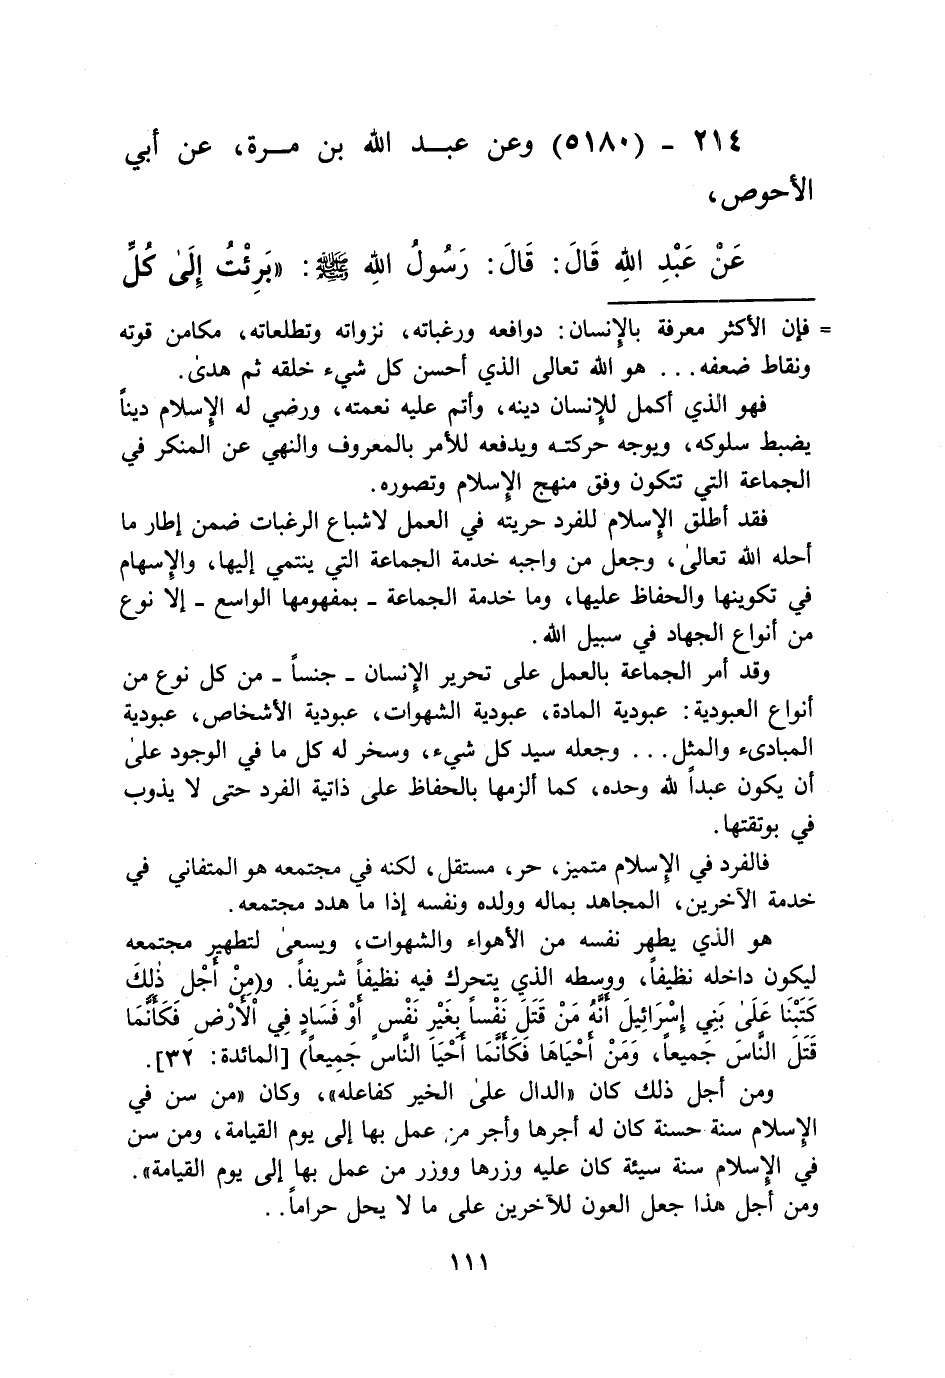 ٢١٤ - (٥١٨٠) وعن عبـد الله بن مـرة، عن أبي
الأحوص،
عَنْ عَبْدِ اللهِ قَالَ: قَالَ: رَسُولُ اللهِ ﷺ: «بَرِئْتُ إِلَىٰ كُلِّ
= فإن الأكثر معرفة بالإنسان: دوافعه ورغباته، نزواته وتطلعاته، مكامن قوته
ونقاط ضعفه... هو الله تعالى الذي أحسن كل شيء خلقه ثم هدىٰ.
فهو الذي أكمل للإنسان دينه، وأتم عليه نعمته، ورضي له الإسلام ديناً
يضبط سلوكه، ويوجه حركته ويدفعه للأمر بالمعروف والنهي عن المنكر في
الجماعة التي تتكون وفق منهج الإسلام وتصوره.
فقد أطلق الإسلام للفرد حريته في العمل لاشباع الرغبات ضمن إطار ما
أحله الله تعالىٰ، وجعل من واجبه خدمة الجماعة التي ينتمي إليها، والإسهام
في تكوينها والحفاظ عليها، وما خدمة الجماعة - بمفهومها الواسع - إلا نوع
من أنواع الجهاد في سبيل الله.
وقد أمر الجماعة بالعمل على تحرير الإنسان - جنساً - من كل نوع من
أنواع العبودية: عبودية المادة، عبودية الشهوات، عبودية الأشخاص، عبودية
المبادىء والمثل... وجعله سيد كل شيء، وسخر له كل ما في الوجود علىٰ
أن يكون عبداً لله وحده، كما ألزمها بالحفاظ على ذاتية الفرد حتى لا يذوب
في بوتقتها.
فالفرد في الإسلام متميز، حر، مستقل، لكنه في مجتمعه هو المتفاني في
خدمة الآخرين، المجاهد بماله وولده ونفسه إذا ما هدد مجتمعه.
هو الذي يطهر نفسه من الأهواء والشهوات، ويسعىٰ لتطهير مجتمعه
ليكون داخله نظيفاً، ووسطه الذي يتحرك فيه نظيفاً شريفاً. و(مِنْ أَجْلِ ذٰلِكَ
كَتَبْنَا عَلَىٰ بَنِي إِسْرَائِيلَ أَنَّهُ مَنْ قَتَلَ نَفْساً بِغَيْرِ نَفْسٍ أَوْ فَسَادٍ فِي الْأَرْضِ فَكَأَنَّمَا
قَتَلَ النَّاسَ جَمِيعاً، وَمَنْ أَحْيَاهَا فَكَأَنَّمَا أَحْيَا النَّاسَ جَمِيعاً) [المائدة: ٣٢].
ومن أجل ذلك كان «الدال علىٰ الخير كفاعله»، وكان «من سن في
الإسلام سنة حسنة كان له أجرها وأجر من عمل بها إلى يوم القيامة، ومن سن
في الإسلام سنة سيئة كان عليه وزرها ووزر من عمل بها إلى يوم القيامة».
ومن أجل هذا جعل العون للآخرين على ما لا يحل حراماً..
١١١